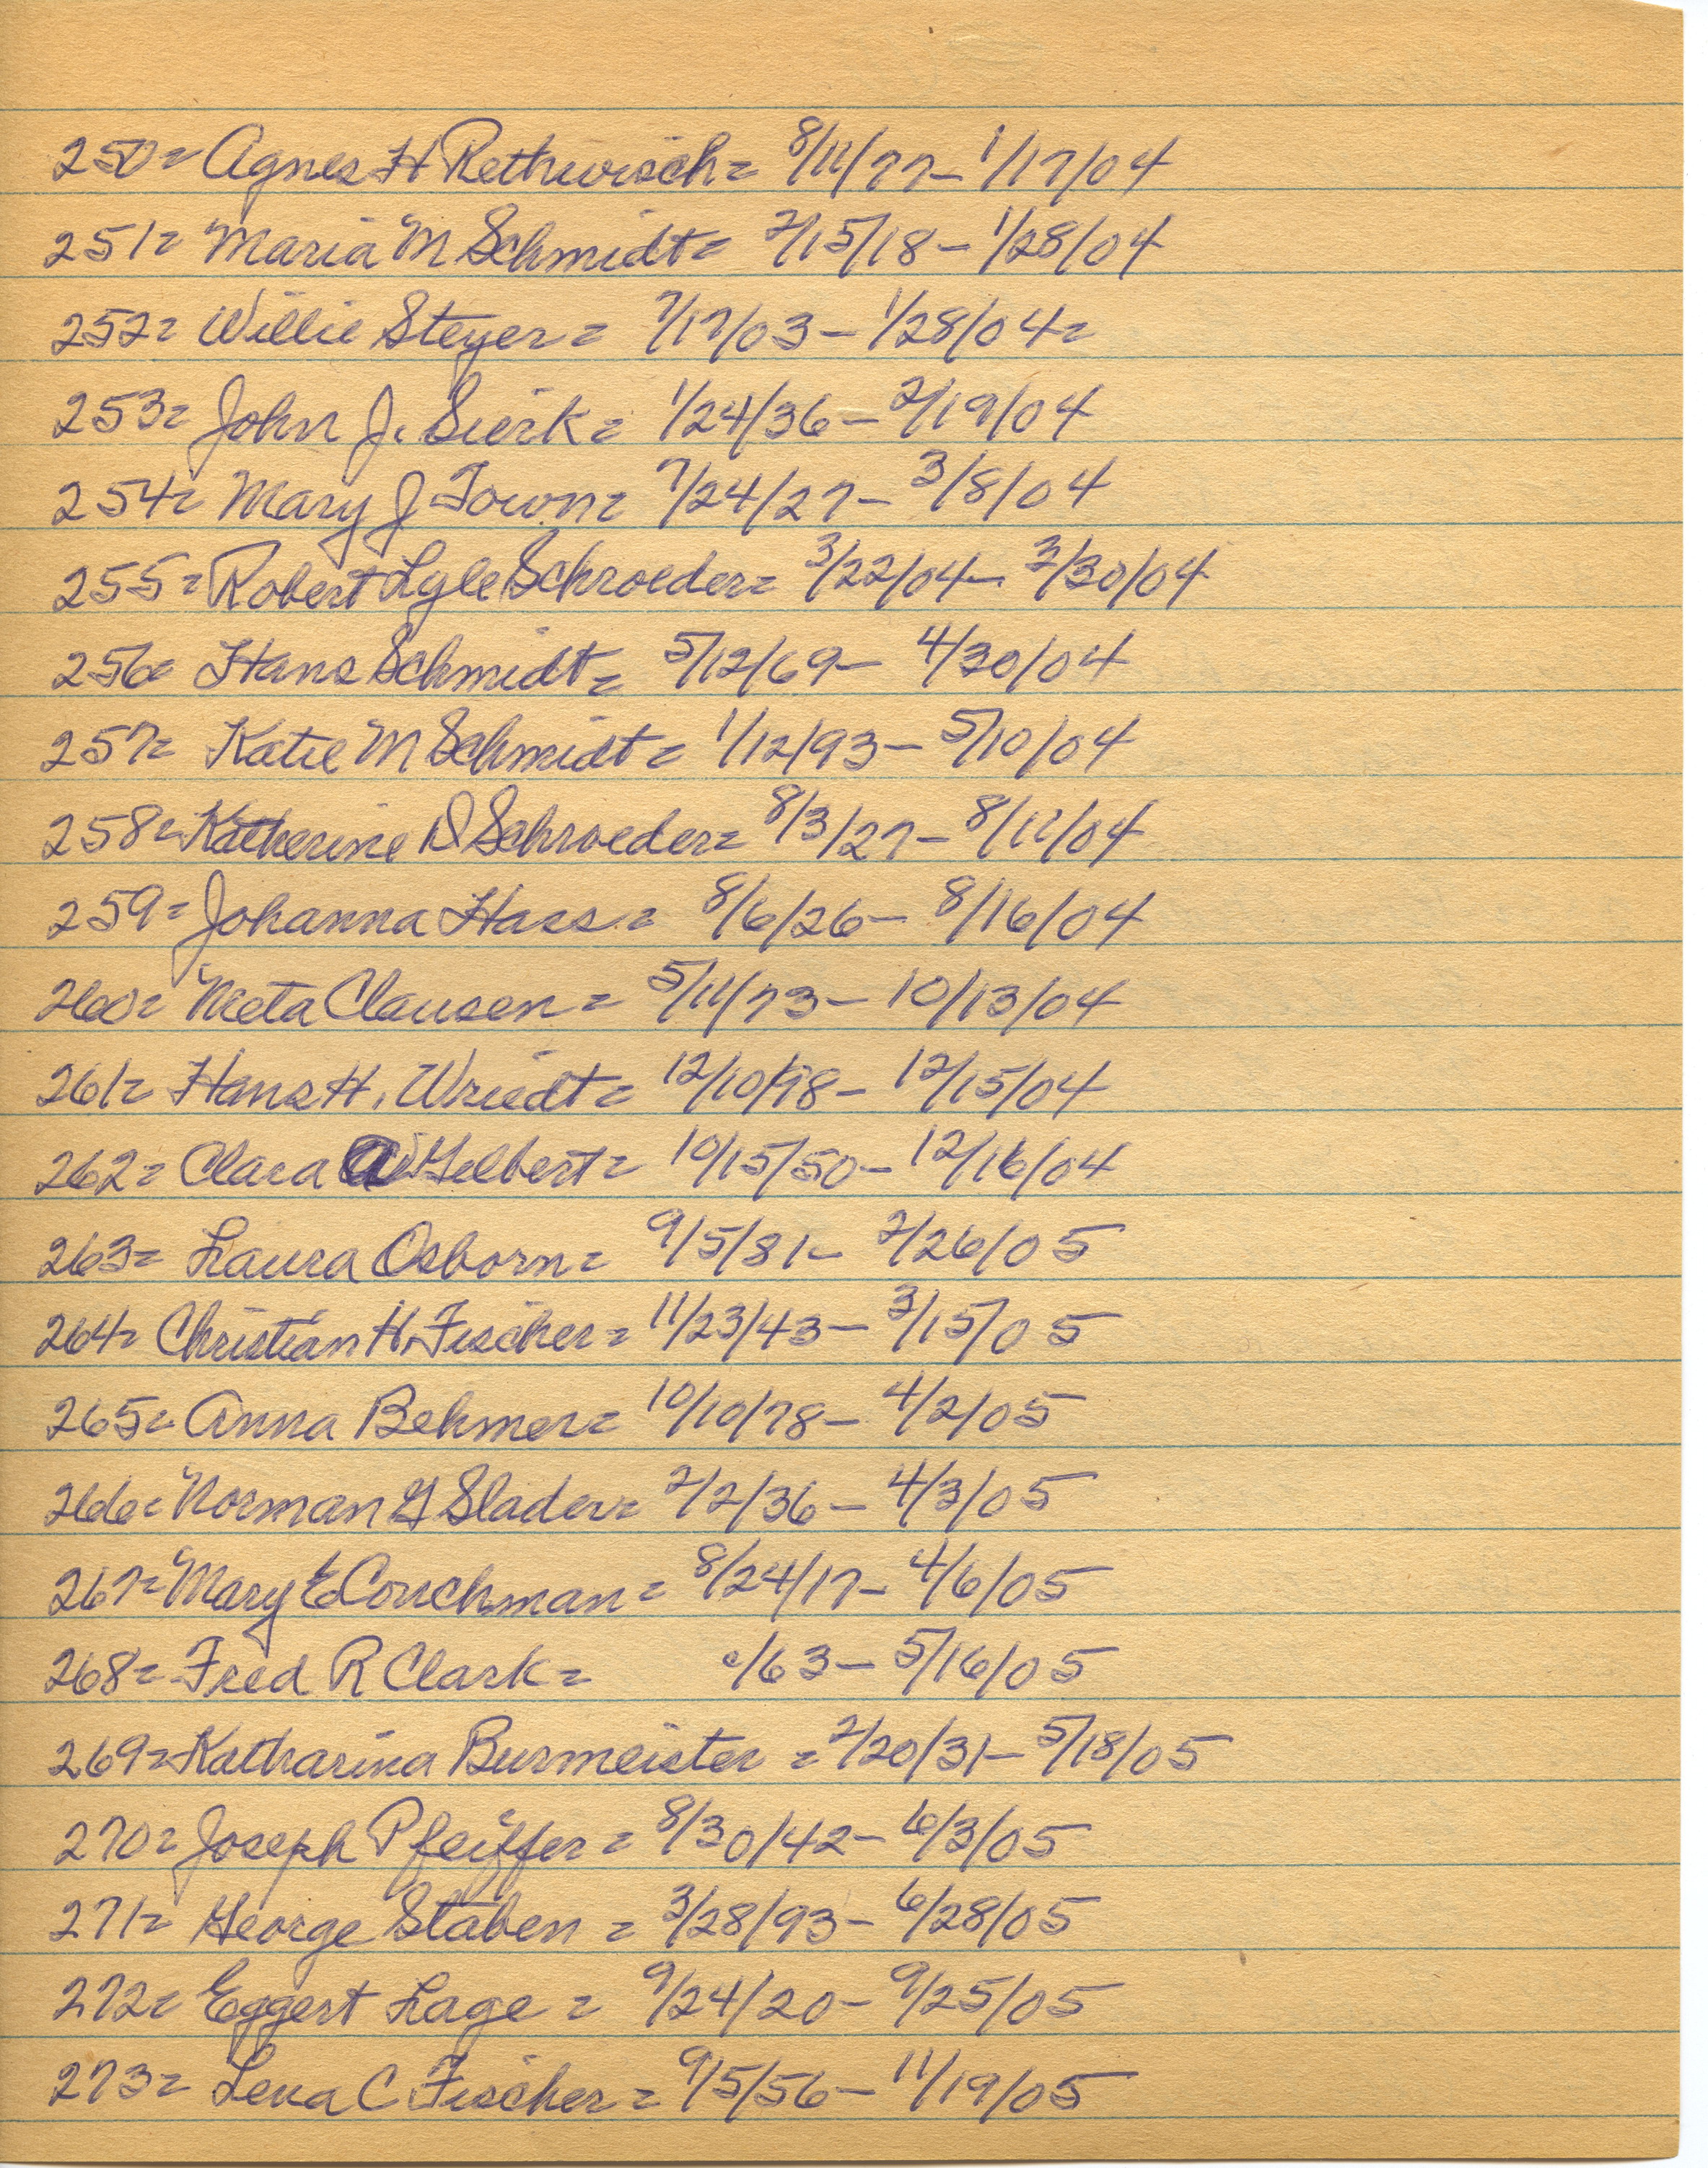 250= Agnes H Rethwisch= 8/11/77- 1/17/04
251= Maria M Schmidt= 2/15/18- 1/28/04
252= Willie Steyer= 7/17/03- 1/28/04=
253= John J. Sierk= 1/24/36- 2/19/04
254= Mary J Town= 7/24/27- 3/8/04
255= Robert Lyle Schroeder= 3/22/04- 3/30/04
256= Hans Schmidt= 5/12/69- 4/30/04
257= Katie M Schmidt= 1/12/93- 5/10/04
258= Katherine D Schroeder= 8/3/27- 8/12/04
259= Johanna Hass= 8/6/26- 8/16/04
260= Meta Clausen= 5/11/73- 10/13/04
261= Hans H. Wriedt= 12/10/98- 12/15/04
262= Clara Gelbert= 10/15/50- 12/16/04
263= Laura Osborn= 9/5/81- 2/26/05
264= Christian H. Fischer= 11/23/43- 3/15/05
265= Anna Behmer= 10/10/78- 4/2/05
266= Norman G Slader= 2/2/36- 4/3/05
267= Mary E Couchman= 8/24/17- 4/6/05
268= Fred R Clark= c/63- 5/16/05
269= Katharina Burmeister = 2/20/31- 5/18/05
270= Joseph Pfeiffer= 8/30/42- 6/3/05
271= George Staben = 3/28/93- 6/28/05
272= Eggert Lage = 9/24/20- 9/25/05
273= Lena C Fischer= 9/5/56- 11/19/05